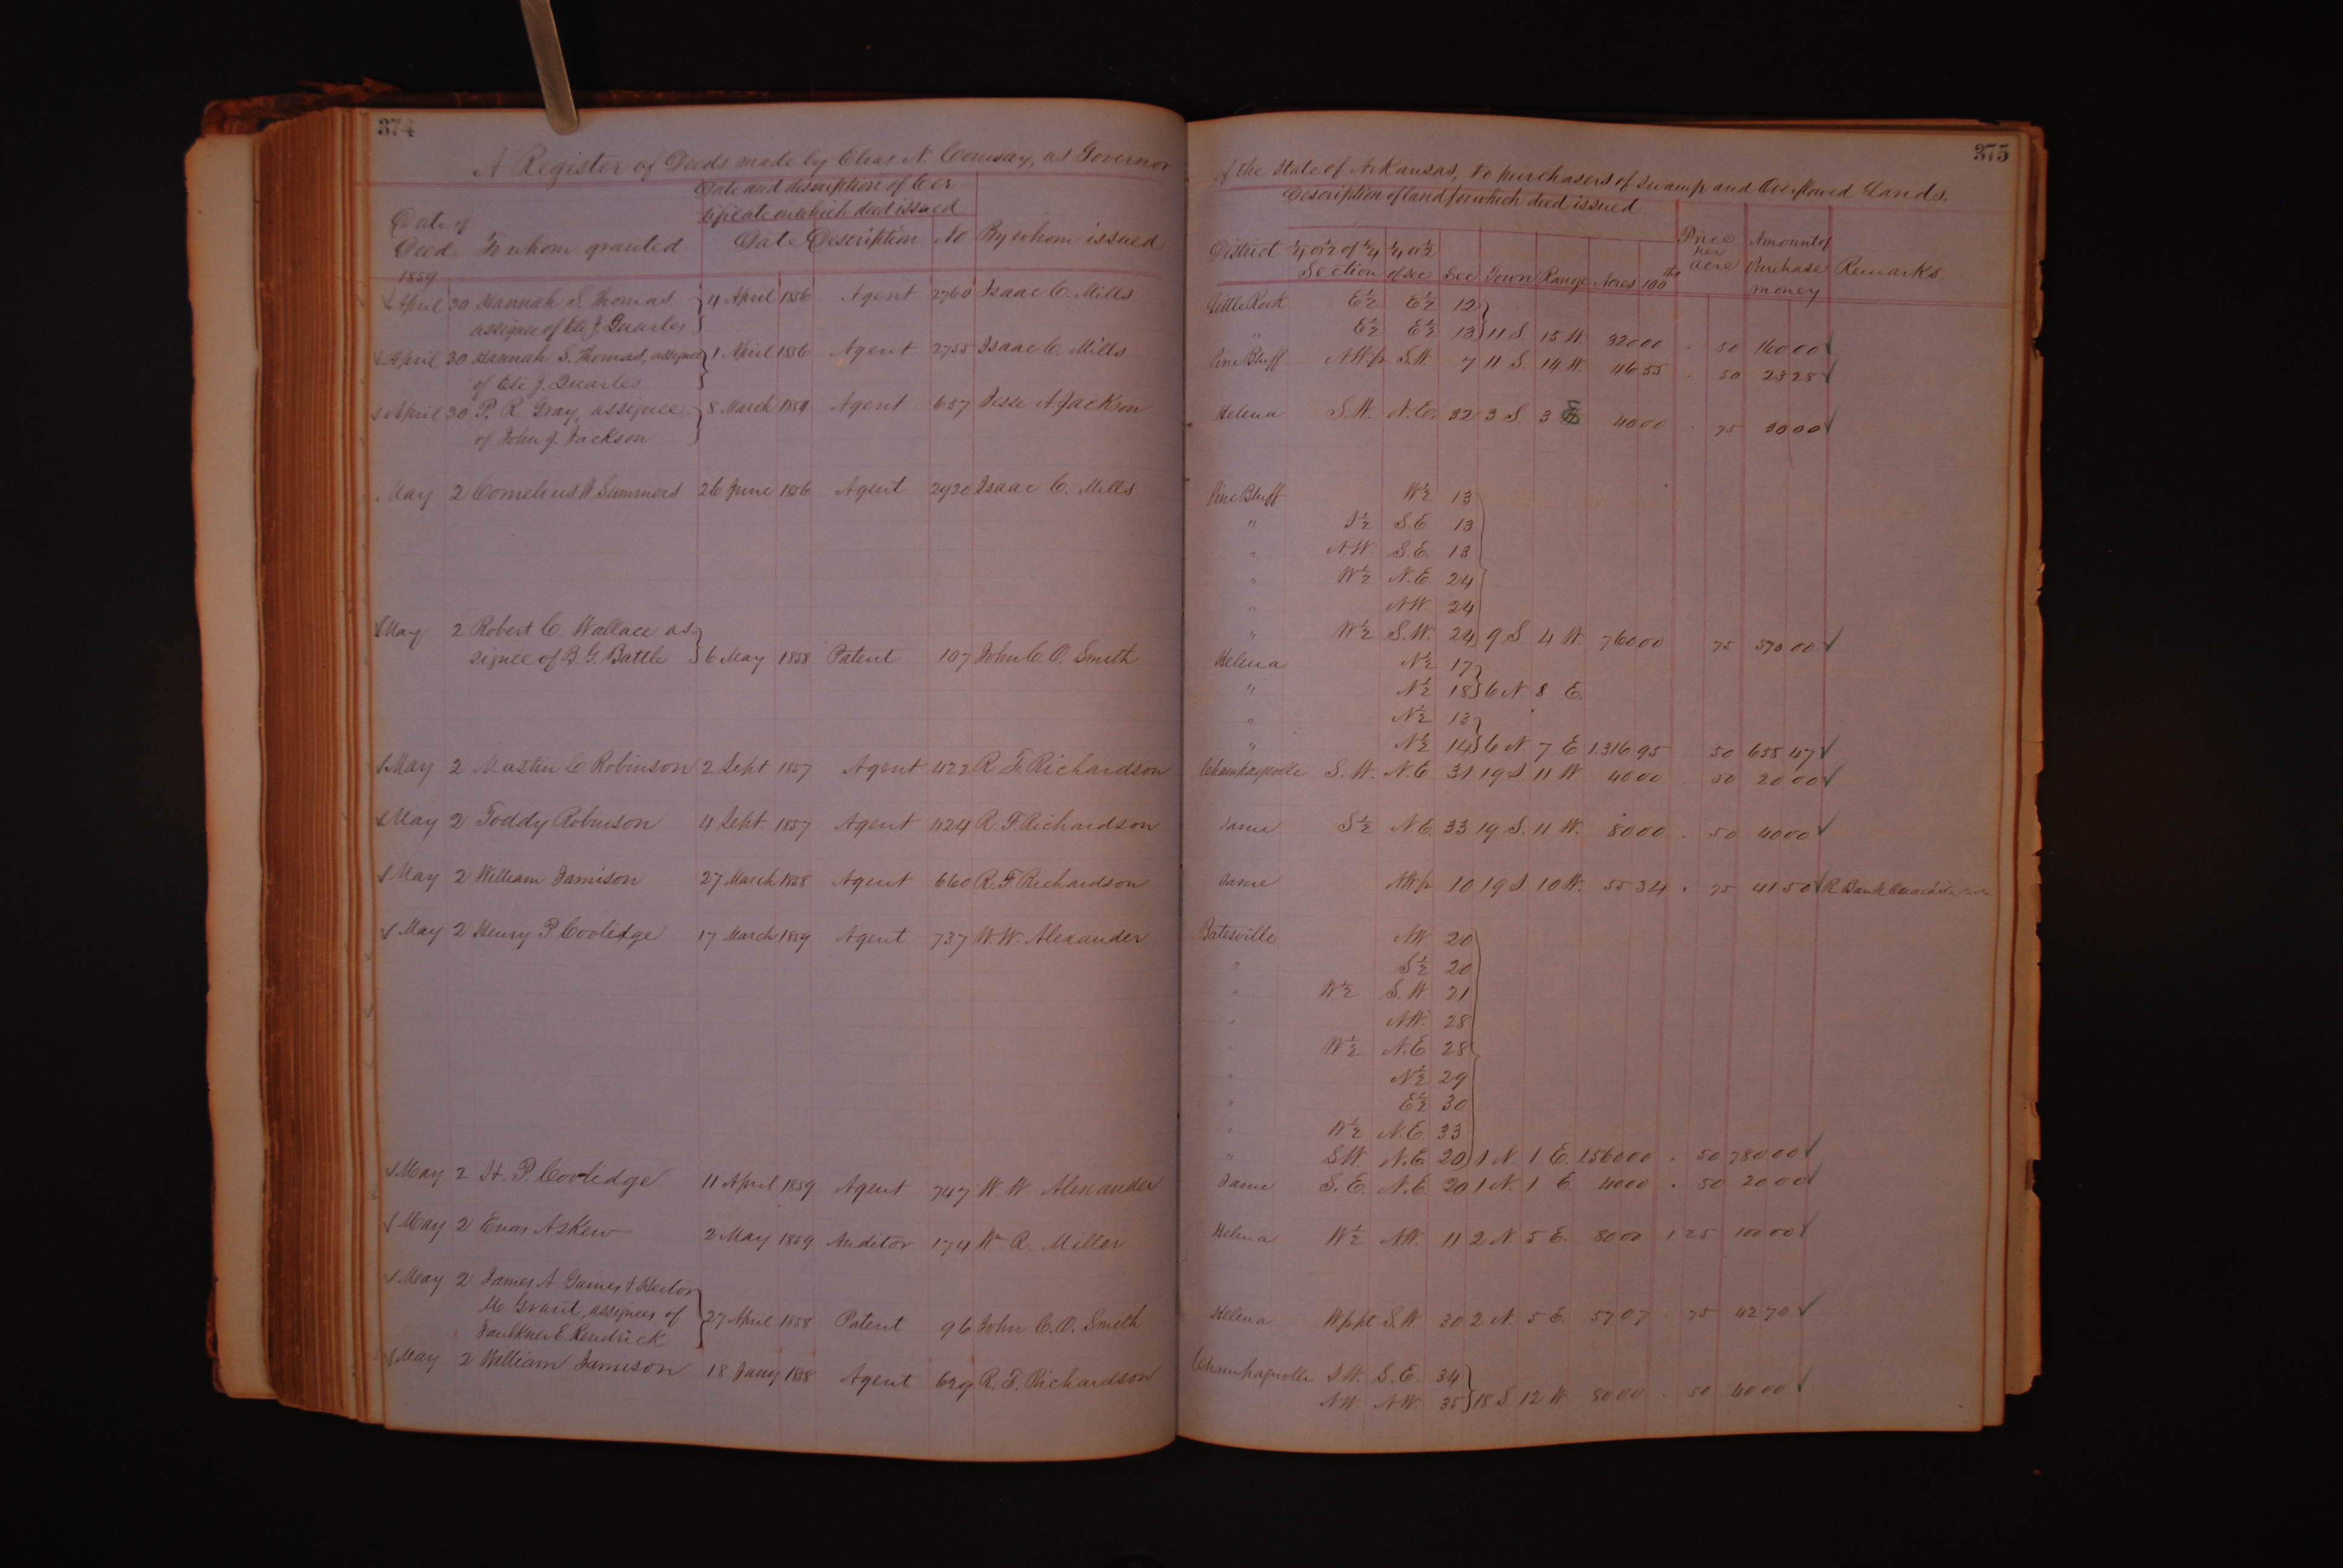 374
A Register of Deeds made by Elias N. Conway, as Governor
Date and description of Cer
tificate on which deed issued
Date of
Deed. To whom granted Date Description No By whom issued
1859
April 30 Hannah S. Thomas 4 April 1856 Agent 2760 Isaac C. Mills
assignee of Ete J. Quarles
April 30 Hannah S. Thomas, assignee 1 April 1856 Agent 2755 Isaac C. Mills
of Ete J. Quarles
April 30 P. R. Gray, assignee 8 March 1859 Agent 657 Jesse A Jackson
of John J. Jackson
May 2 Cornelius Summers 26 June 1856 Agent 2920 Isaac C. Mills
May 2 Robert C. Wallace as
signee of B. G. Battle 6 May 1858 Patent 107 John C. O. Smith
May 2 Mastin C. Robinson 2 Sept 1857 Agent 422 R. F. Richardson
May 2 Toddy Robinson 4 Sept 1857 Agent 424 R. F. Richardson
May 2 William Jamison 27 March 1858 Agent 660 R. F. Richardson
May 2 Henry P. Coolidge 17 March 1859 Agent 737 W. W. Alexander
May 2 H. P. Coolidge 11 April 1859 Agent 747 W. W Alexander
May 2 Enas Askew 2 May 1859 Auditor 174 Wm R. Miller
May 2 James A Games & Hector
M Grant, assignees of 27 April 1858 Patent 96 John C. O. Smith
Faulkner E. Kendrick
May 2 William Jamison 18 Jany 1858 Agent 629 R. F. Richardson
375
of the State of Arkansas, to purchasers of Swamp and Overflowed Lands.
Description of land for which deed issued.
District ¼ or ½ of ¼ ¼ or ½ Price Amount of
Section of sec Sec Town Range Acres 100ths per acre Purchase money Remarks
Little Rock E½ E½ 12
" E½ E½ 13 11 S. 15 W. 320 00 . 50 160 00
Pine Bluff NWp S.W. 7 11 S. 14 W. 46 55 . 50 23 28
Helena S.W. N.E. 32 3 S. 3 E 40 00 . 75 30 00
Pine Bluff W½ 13
" S½ S.E. 13
" NW. S.E. 13
" W½ N.E. 24
" NW. 24
" W½ S.W. 24 9 S 4 W. 760 00 75 570 00
Helena N½ 17
" N½ 18 6 N. 8 E.
" N½ 13
" N½ 14 6 N. 7 E 1316 95 50 658 47
Champagnolle S.W. N.E 31 19 S. 11 W. 40 00 . 50 20 00
Same S½ N.E. 33 19 S. 11 W. 80 00 . 50 40 00
Same NWp 10 19 S. 10 W. 55 34 . 75 41 50 R. Bank Ouachita
Batesville NW 20
" S½ 20
" W½ S.W 21
" NW. 28
" W½ N.E 28
" N½ 29
" E½ 30
" W½ N.E. 33
" SW. N.E. 20 1 N. 1 E. 1560 00 . 50 780 00
Same S.E. N.E. 20 1 N. 1 E. 40 00 . 50 20 00
Helena W½ NW. 11 2 N. 5 E. 80 00 1 25 100 00
Helena Wppt S.W. 30 2 N. 5 E. 57 07 . 75 42 70
Champagnolle SW. S.E. 34
NW. NW. 35 18 S. 12 W. 80 00 . 50 40 00